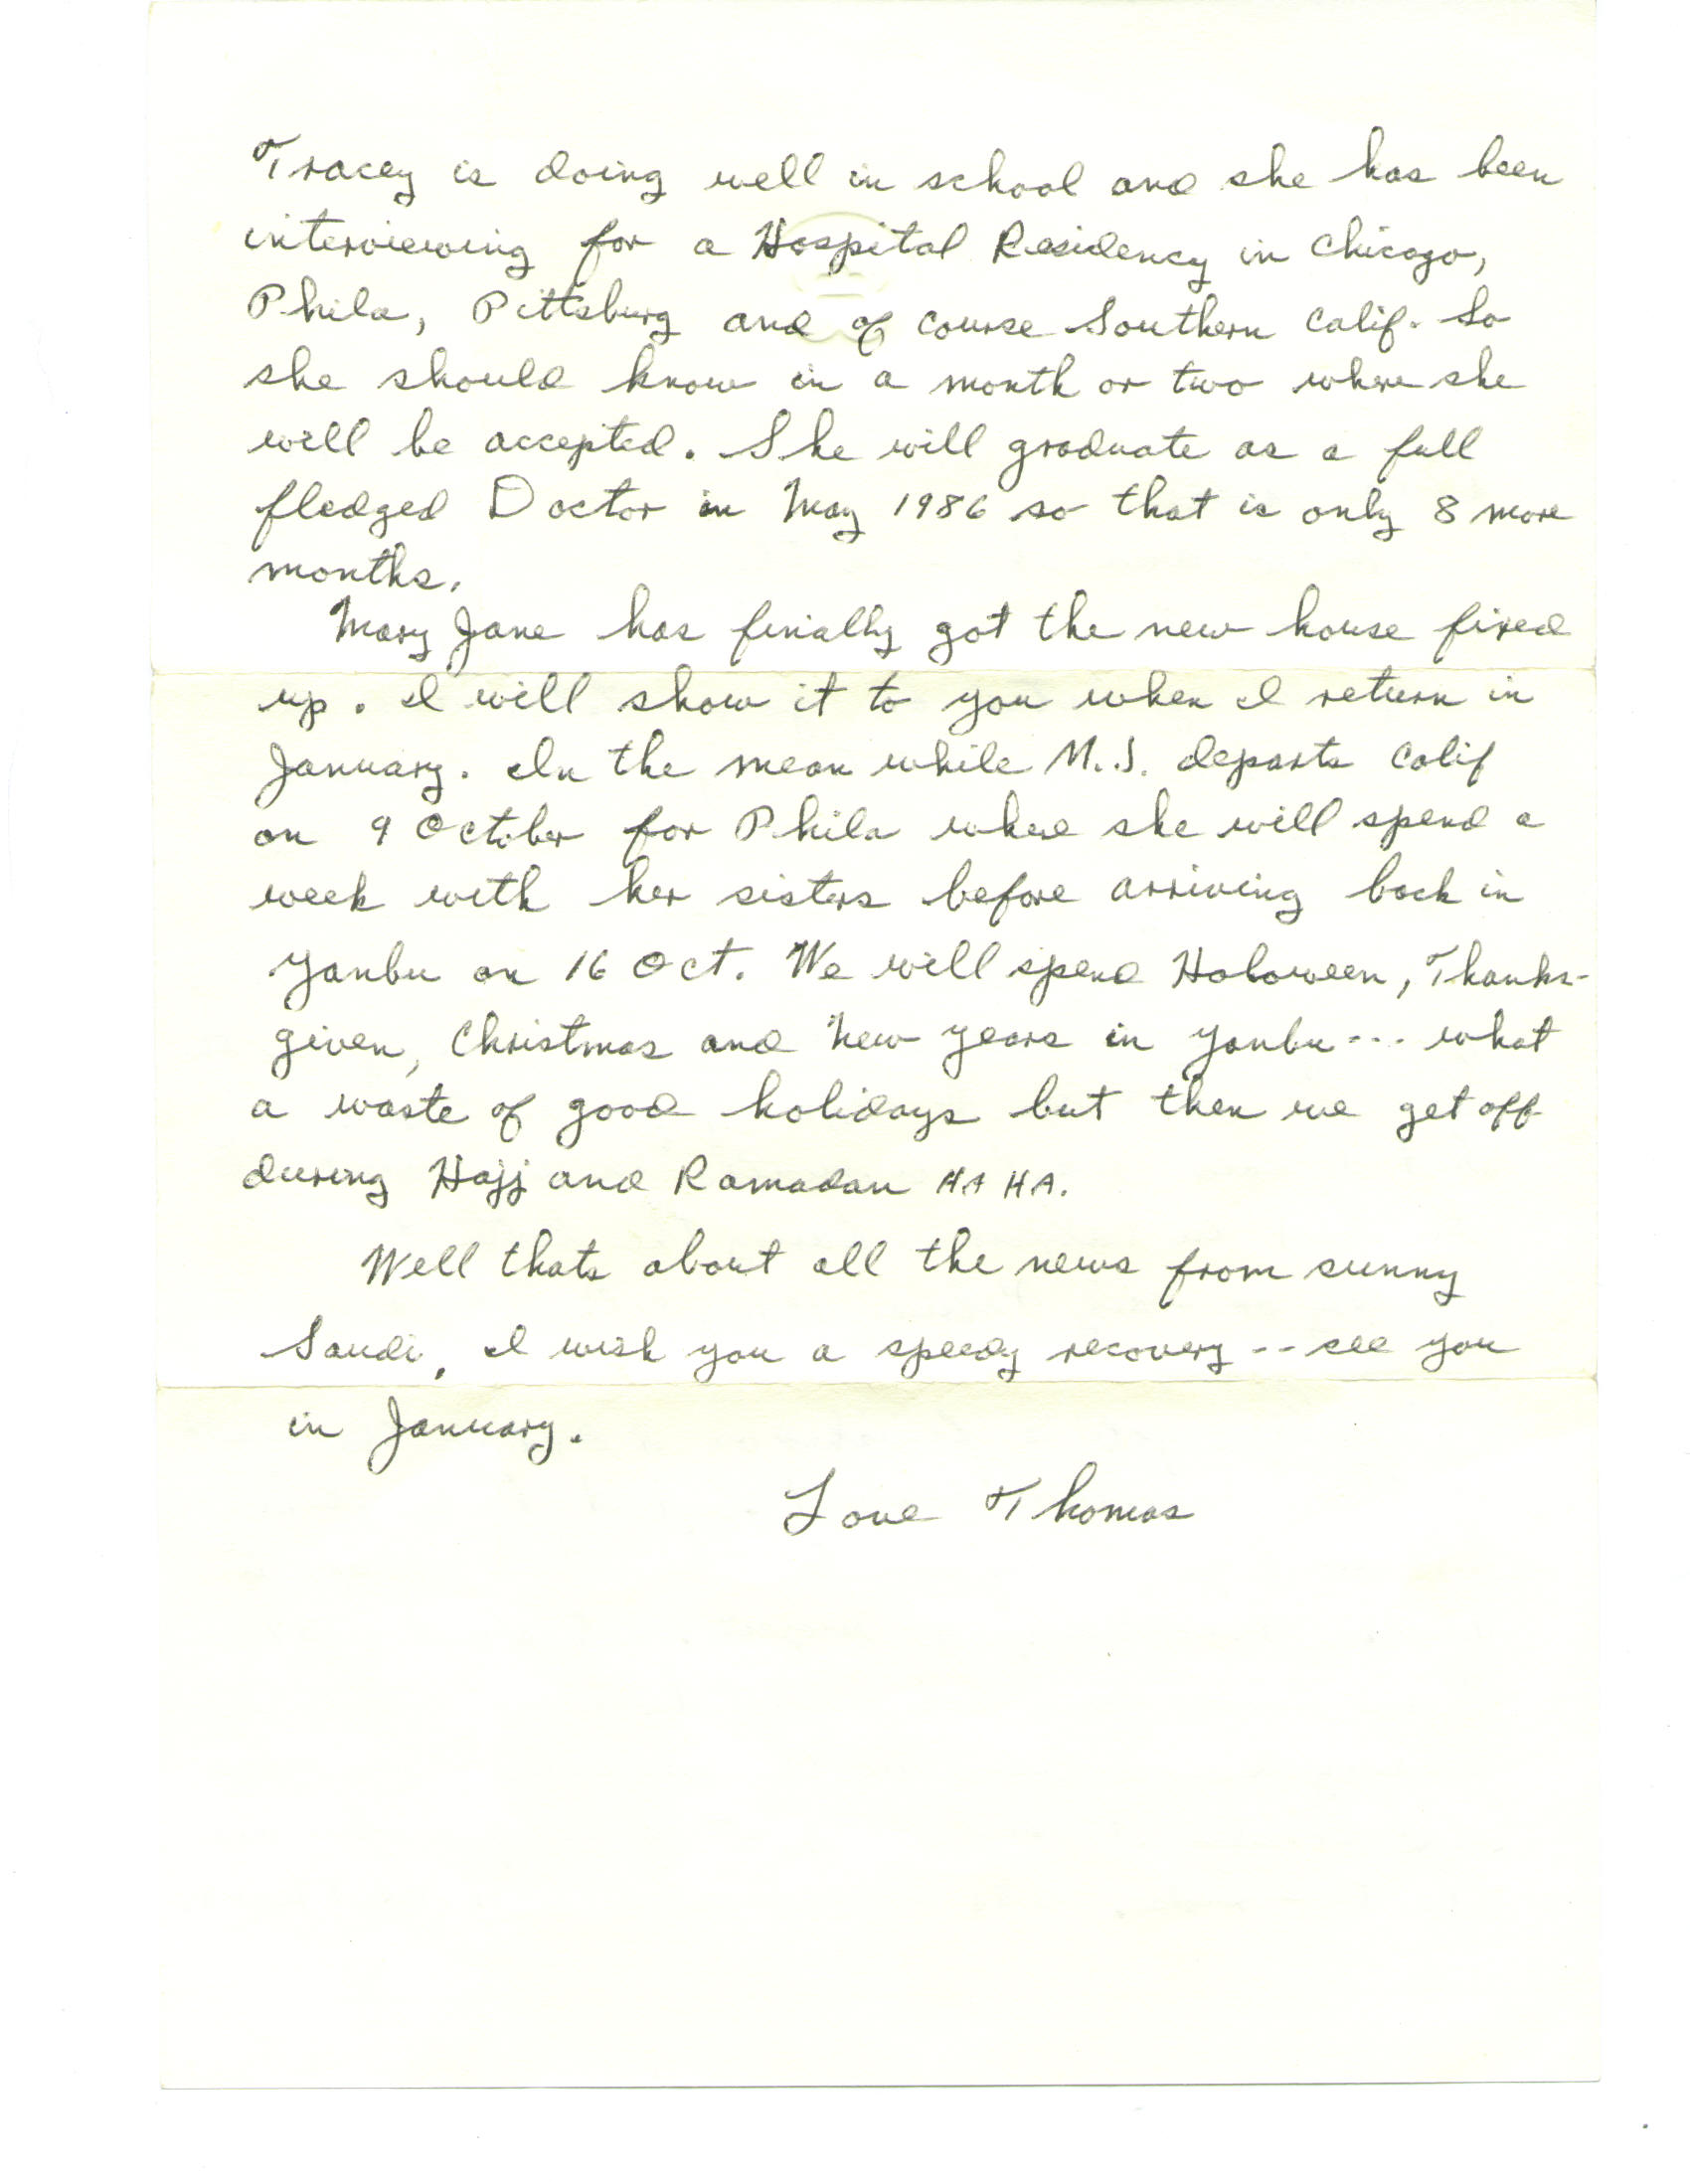 Tracey is doing well in school and she has been
interviewing for a Hospital Residency in Chicago,
Phila, Pittsburg and of course Southern Calif. So
she should know in a month or two where she
will be accepted. She will graduate as a full
fledged Doctor in May 1986 so that is only 8 more
months.
Mary Jane has finially got the new house fixed
up. I will show it to you when I return in
January. In the mean while M.J. departs Calif
on 9 October for Phila where she will spend a
week with her sisters before arriving back in
Yanbu on 16 Oct. We will spend Holoween, Thanks-
given, Christmas and New Years in Yanbu --- what
a waste of good holidays but then we get off
during Hajj and Ramadan HA HA.
Well thats about all the news from sunny
Saudi, I wish you a speedy recovery -- see you
in January.
Love Thomas